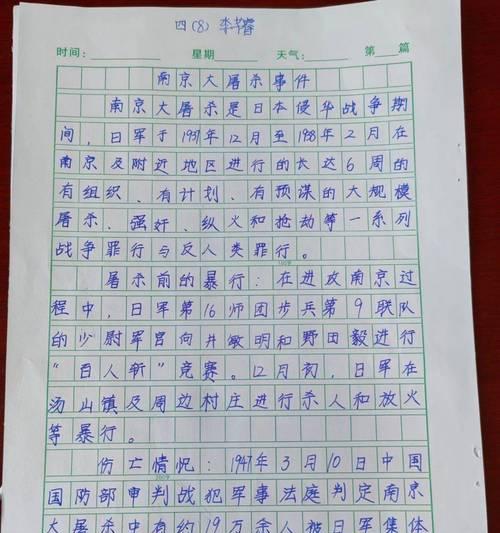 四(8) 李书睿
时间: 星期 天气: 第 篇
南京大屠杀事件
南京大屠杀是日本侵华战争期
间,日军于1937年12月至1938年2月在
南京及附近地区进行的长达6周的
有组织、有计划、有预谋的大规模
屠杀、强奸、纵火和抢劫等一系列
战争罪行与反人类罪行。
屠杀前的暴行:在进攻南京过
程中,日军第16师团步兵第9联队
的少尉军官向井敏明和野田毅进行
“百人斩”竞赛。12月初,日军在
汤山镇及周边村庄进行杀人和放火
等暴行。
伤亡情况:1947年3月10日中国
国防部审判战犯军事法庭判定南京
大屠杀中有约19万余人被日军集体